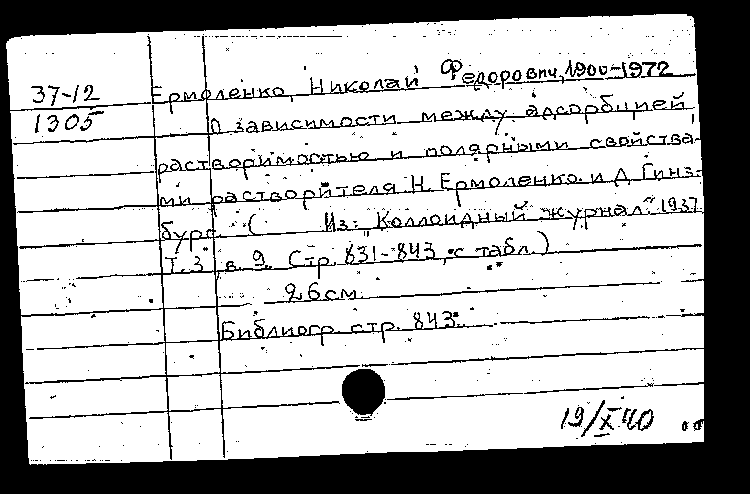 37-12 Ермоленко, Николай Федорович, 1900-1972
1305 О зависимости между адсорбцией,
растворимостью и полярными свойства-
ми растворителя Н. Ермоленко и Д. Гинз-
бург. (Из: "Коллоидный журнал". 1937.
Т. 3, в. 9. Стр. 831-843, с табл.)
26 см.
Библиогр. стр. 843.
19/X 40